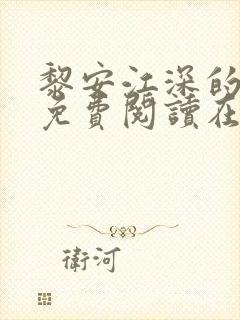 黎安江深的
免費閱讀在
衛河